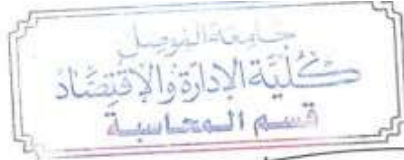 جامعة الموصل
كلية الإدارة والإقتصاد
قسم المحاسبة